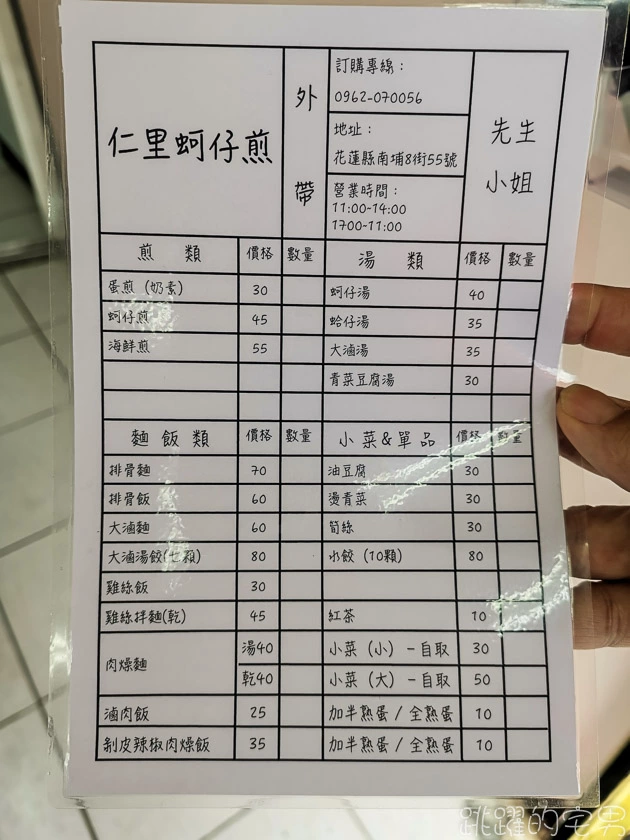 仁里蚵仔煎
外帶
訂購專線：
0962-070056
地址：
花蓮縣南埔8街55號
營業時間：
11:00-14:00
1700-11:00
先生
小姐
煎類 價格 數量 湯類 價格 數量
蛋煎（奶素） 30 蚵仔湯 40
蚵仔煎 45 蛤仔湯 35
海鮮煎 55 大滷湯 35
青菜豆腐湯 30
麵飯類 價格 數量 小菜&單品 價格 數量
排骨麵 70 油豆腐 30
排骨飯 60 燙青菜 30
大滷麵 60 筍絲 30
大滷湯餃(七顆) 80 水餃（10顆） 80
雞絲飯 30
雞絲拌麵(乾) 45 紅茶 10
肉燥麵 湯40 小菜（小）-自取 30
乾40 小菜（大）-自取 50
滷肉飯 25 加半熟蛋/全熟蛋 10
剝皮辣椒肉燥飯 35 加半熟蛋/全熟蛋 10
跳躍的宅男